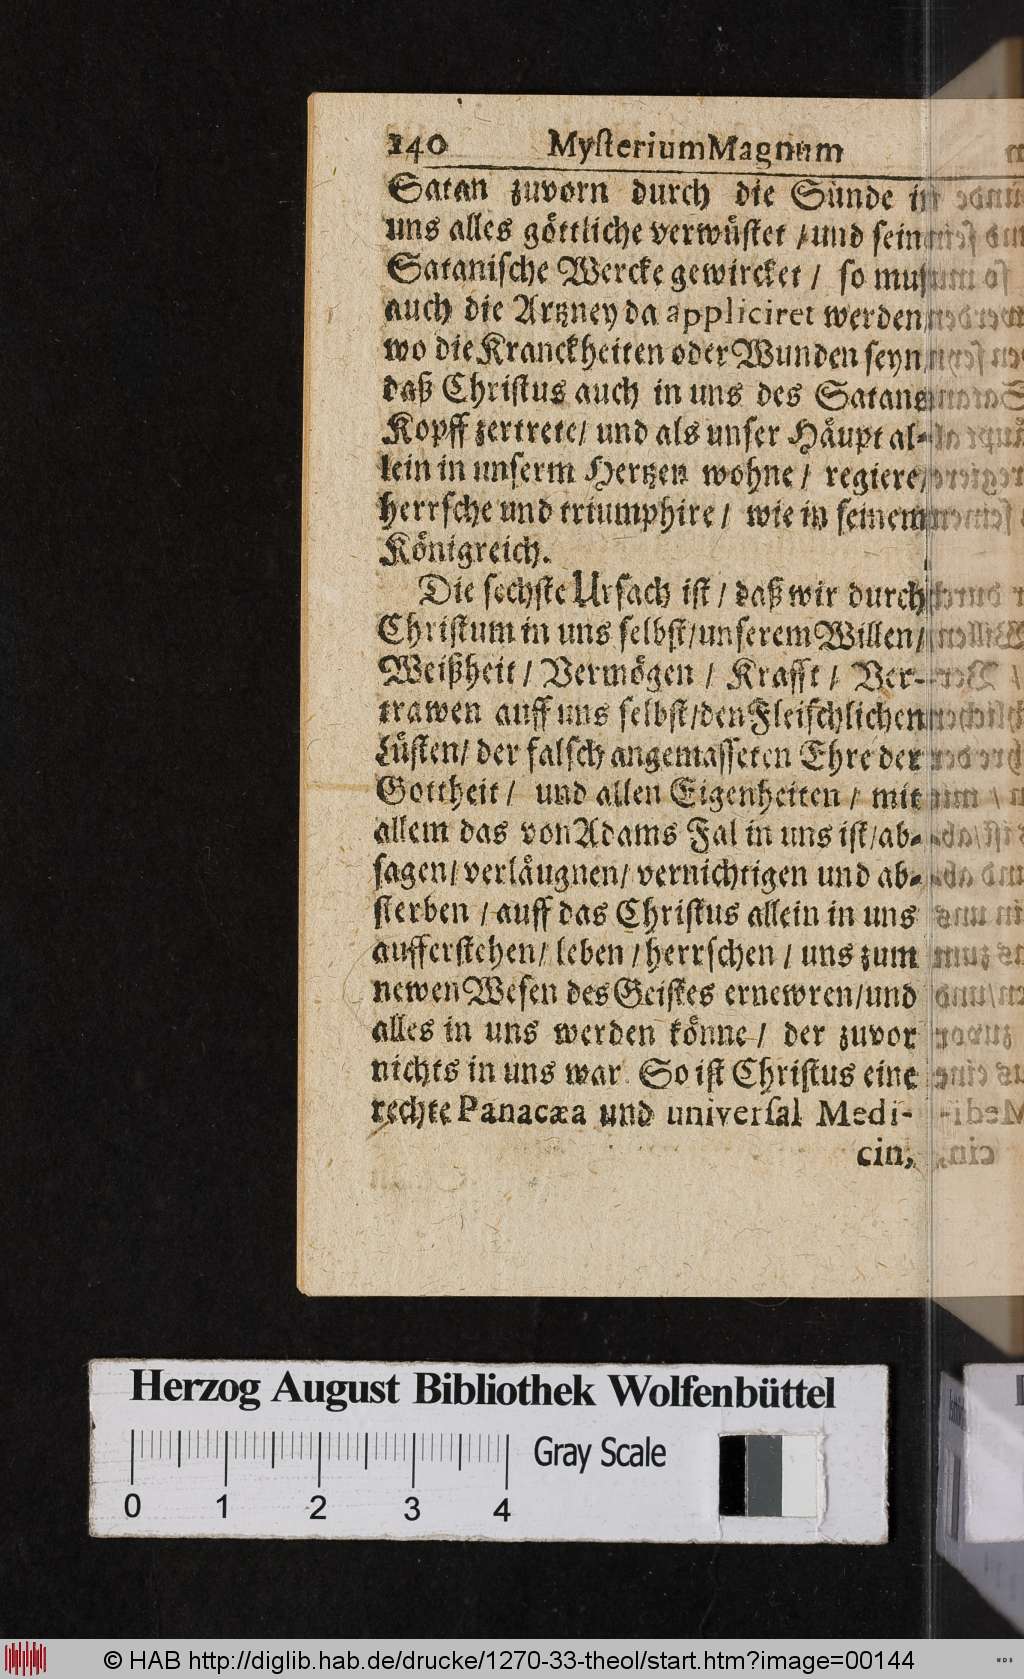 140 Myſterium Magnum
Satan zuvorn durch die Sünde in
uns alles göttliche verwüſtet / und ſein
Sataniſche Wercke gewircket / ſo muß
auch die Artzney da appliciret werden
wo die Kranckheiten oder Wunden ſeyn
daß Chriſtus auch in uns des Satans
Kopff zertrete / und als unſer Häupt al-
lein in unſerm Hertzen wohne / regiere /
herrſche und triumphire / wie in ſeinem
Königreich.
Die ſechſte Urſach iſt / daß wir durch
Chriſtum in uns ſelbſt / unſerem Willen /
Weißheit / Vermögen / Krafft / Ver-
trawen auff uns ſelbſt / den Fleiſchlichen
Lüſten / der falſch angemaſſeten Ehre der
Gottheit / und allen Eigenheiten / mit
allem das von Adams Fal in uns iſt / ab-
ſagen / verläugnen / vernichtigen und ab-
ſterben / auff das Chriſtus allein in uns
aufferſtehen / leben / herrſchen / uns zum
newen Weſen des Geiſtes ernewren / und
alles in uns werden könne / der zuvor
nichts in uns war. So iſt Chriſtus eine
rechte Panacæa und univerſal Medi-
cin,
Herzog August Bibliothek Wolfenbüttel
Gray Scale
0 1 2 3 4
© HAB http://diglib.hab.de/drucke/1270-33-theol/start.htm?image=00144